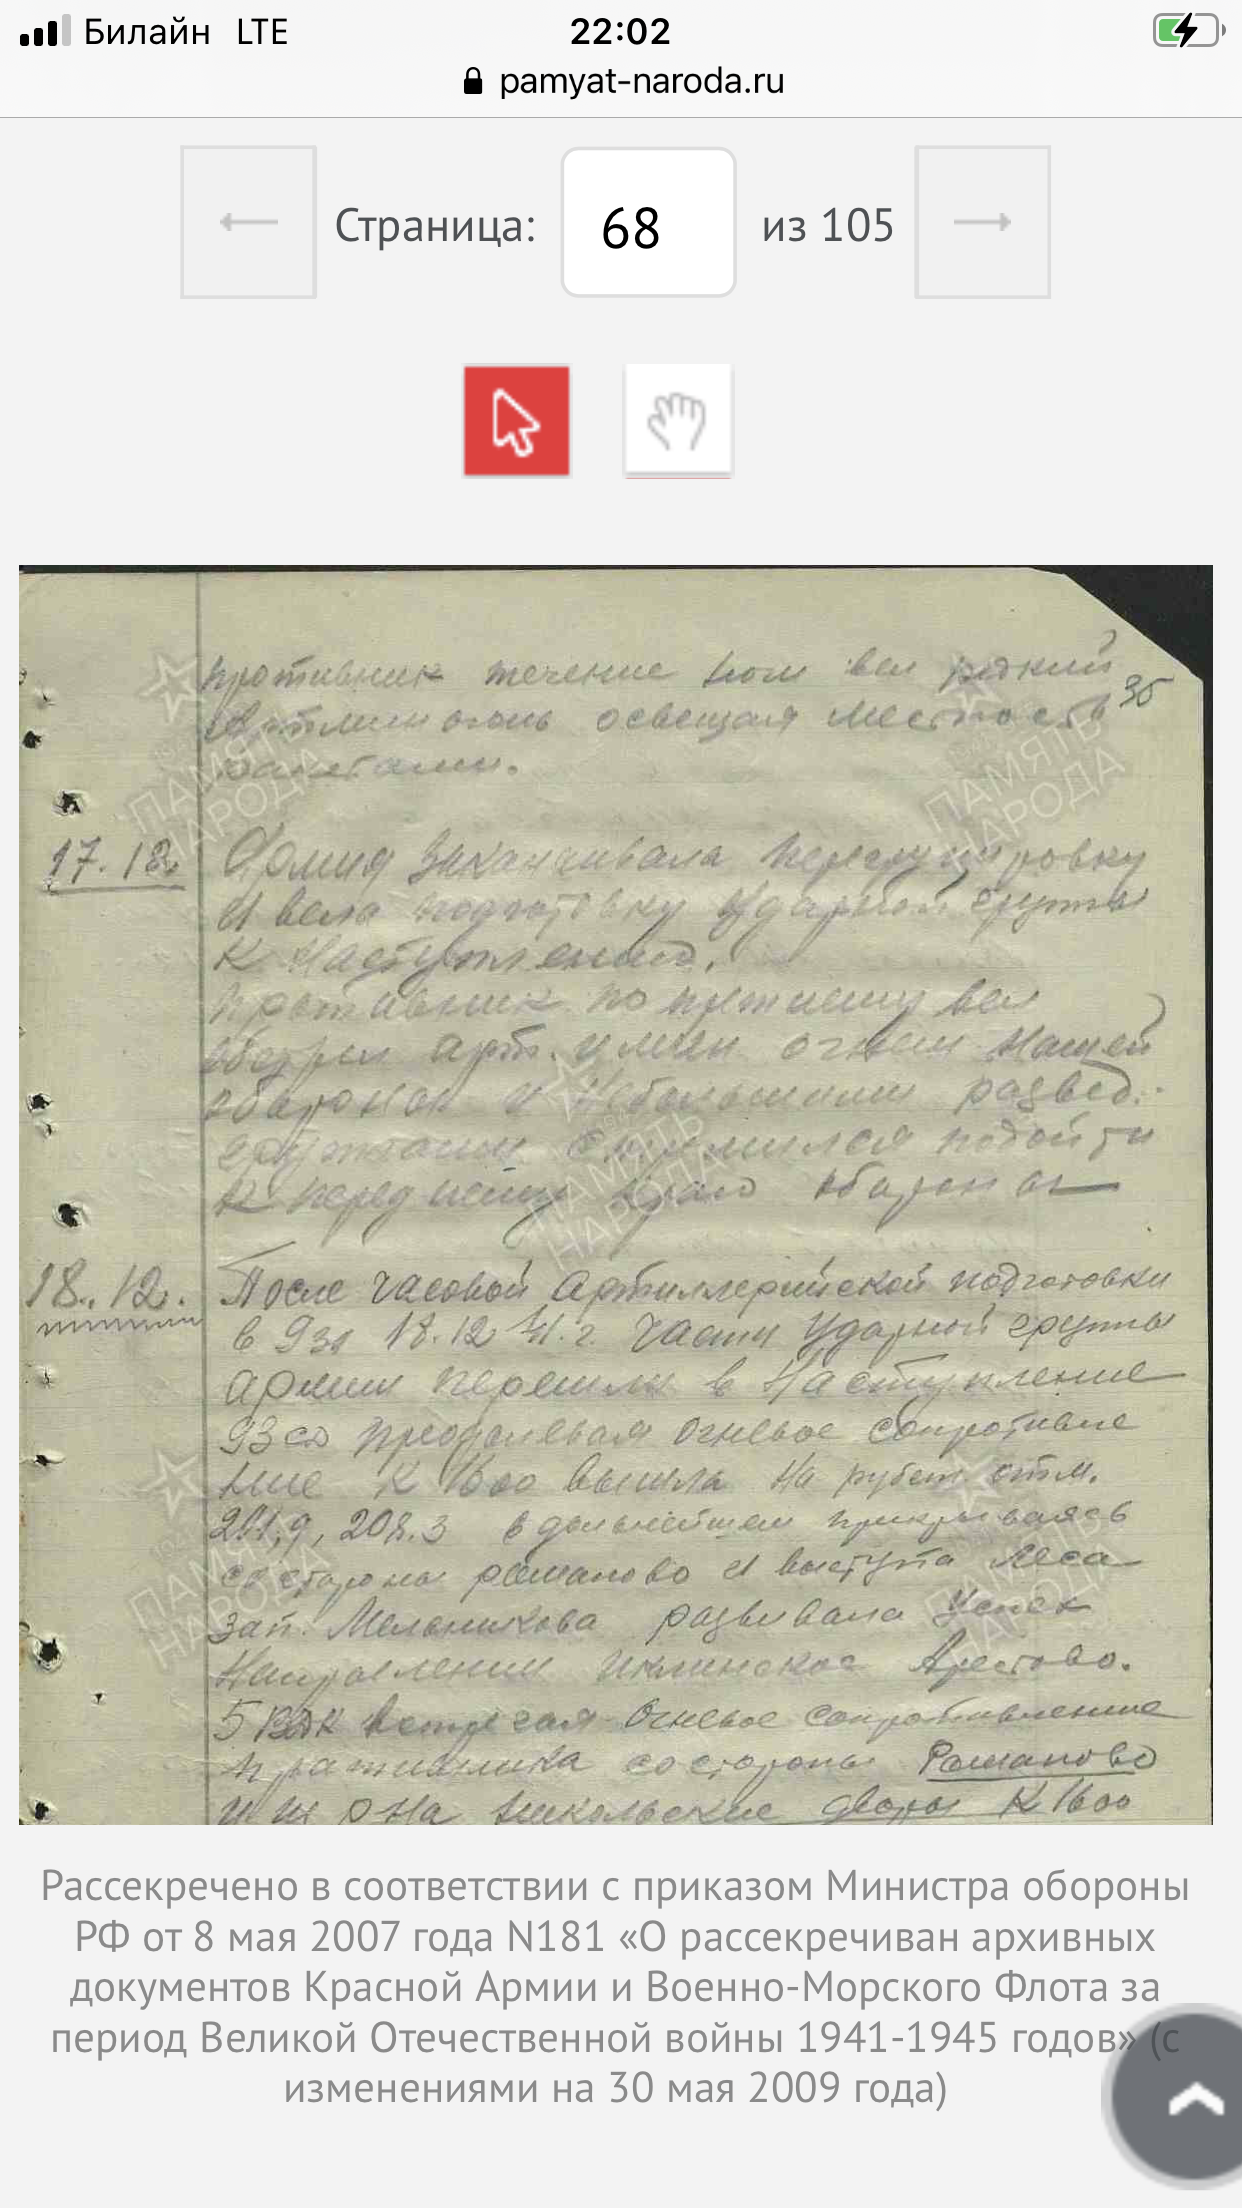 Билайн LTE 22:02
pamyat-naroda.ru
Страница: 68 из 105
противник течение ночи вел редкий
35
огонь освещая местность
ракетами.
17.12. Армия заканчивала перегруппировку
и вела подготовку ударной группы
к наступлению.
противник по прежнему вел
обстрел арт. и мин огнем нашей
обороны и небольшими развед.
группами стремился подойти
к переднему краю обороны
18.12. После часовой артиллерийской подготовки
в 930 18.12 41.г. части ударной группы
армии перешли в наступление
93 сд преодолевая огневое сопротивле
ние к 1600 вышла на рубеж отм.
211,9, 208.3 в дальнейшем прикрываясь
со стороны романово и выступа леса
зап. Мельникова развивала успех
направлении Иклинское Арестово.
5 ВДК встречая огневое сопротивление
противника со стороны Романово
никольские дворы к 1600
ПАМЯТЬ НАРОДА
ПАМЯТЬ НАРОДА
ПАМЯТЬ НАРОДА
ПАМЯТЬ НАРОДА
ПАМЯТЬ НАРОДА
Рассекречено в соответствии с приказом Министра обороны
РФ от 8 мая 2007 года N181 «О рассекречиван архивных
документов Красной Армии и Военно-Морского Флота за
период Великой Отечественной войны 1941-1945 годов» (с
изменениями на 30 мая 2009 года)